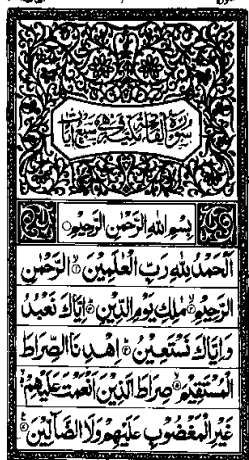 سورة الفاتحة مكية وهي سبع ايات
بسم الله الرحمن الرحيم
اَلْحَمْدُ لِلّٰهِ رَبِّ الْعٰلَمِيْنَ ۙ۝۱ الرَّحْمٰنِ
الرَّحِيْمِ ۙ۝۲ مٰلِكِ يَوْمِ الدِّيْنِ ۝۳ اِيَّاكَ نَعْبُدُ
وَاِيَّاكَ نَسْتَعِيْنُ ۝۴ اِهْدِنَا الصِّرَاطَ
الْمُسْتَقِيْمَ ۙ۝۵ صِرَاطَ الَّذِيْنَ اَنْعَمْتَ عَلَيْهِمْ ۙ۝۶
غَيْرِ الْمَغْضُوْبِ عَلَيْهِمْ وَلَا الضَّآلِّيْنَ ۝۷